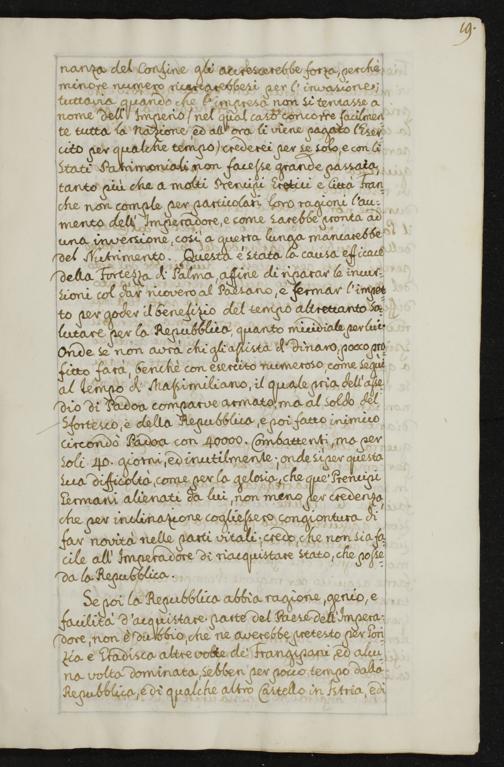 19.
nanza del Confine gli accrescerebbe forza, perche
minore numero ricercarebbesi per l'invasione;
tuttavia quando che l'impresa non si tentasse a
nome dell'Imperio (nel qual caso concorre facilmen
te tutta la Nazione, ed all'ora li viene pagato l'Eser
cito per qualche tempo) crederei per se solo, e con li
Stati Patrimoniali non facesse grande passata
tanto più che a molti Prencipi Eretici e Città Fran
che non comple per particolari loro ragioni l'au
mento dell'Imperadore, e come sarebbe pronta ad
una inversione, così a guerra lunga mancarebbe
del Nutrimento. Questa è stata la causa efficace
della Fortezza di Palma, affine di riparar le incur
sioni col dar ricovero al Paesano, e fermar l'impet
to per goder il benefizio del tempo altrettanto sa
lutare per la Repubblica, quanto micidiale per lui
Onde se non avrà chi gli assista d'Dinaro, pocco pro
fitto farà, benche con esercito numeroso, come seguì
al tempo di Massimiliano, il quale pria dell'asse
dio di Padoa comparve armato, ma al soldo del
Sfortesco, e della Repubblica, e poi fatto inimico
circondò Padoa con 40000. Combattenti, ma per
soli 40. giorni, ed inutilmente; onde si per questa
sua difficoltà, come per la gelosia, che que' Prencipi
Germani alienati da lui, non meno per credenza,
che per inclinazione cogliessero congiontura di
far novità nelle parti vitali; credo, che non sia fa
cile all'Imperadore di riacquistare Stato, che posse
da la Repubblica.
Se poi la Repubblica abbia ragione, genio, e
facilità d'acquistare parte del Paese dell'Impera
dore, non è dubbio, che ne averebbe pretesto per Gori
zia e Gradisca altre volte de' Frangipani ed alcu
na volta dominata, sebben per pocco tempo dalla
Repubblica, e di qualche altro Castello in Istria, e di